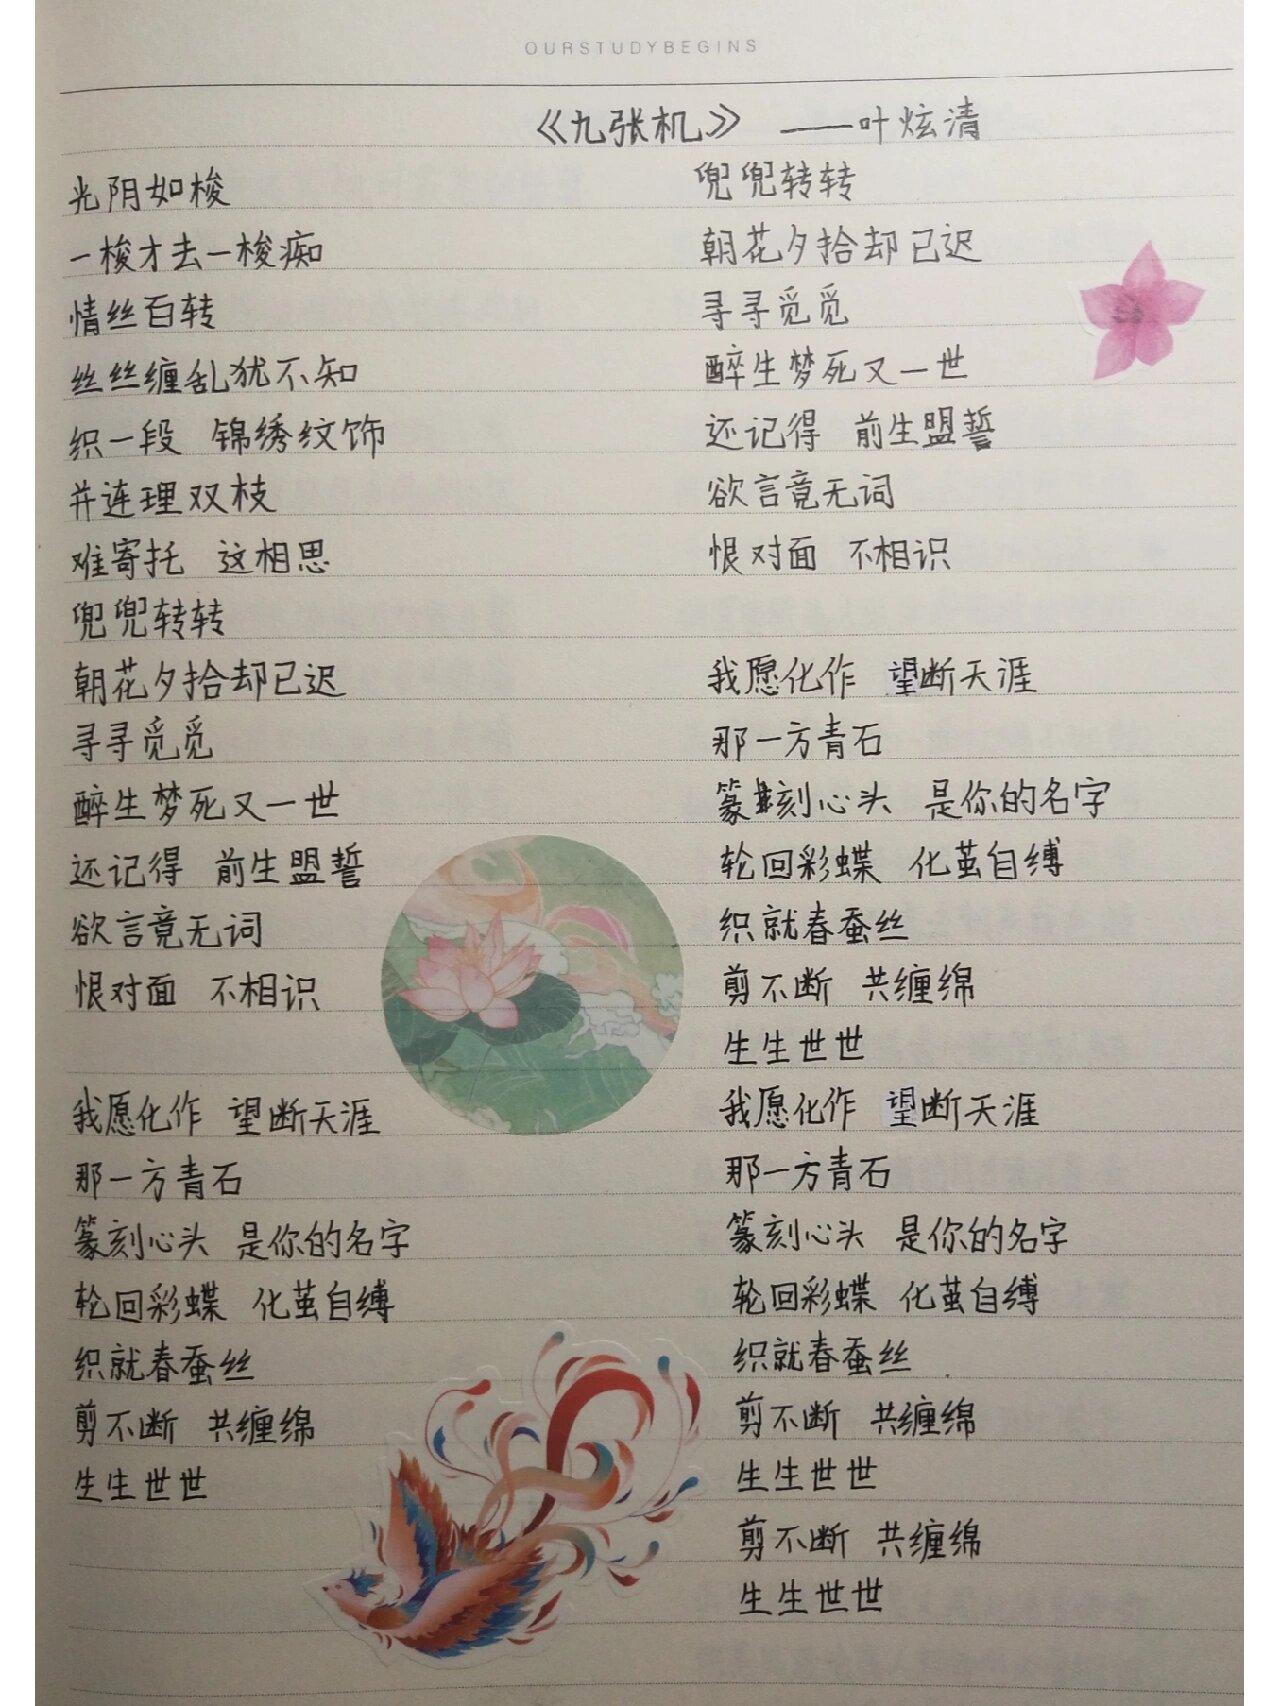 OURSTUDYBEGINS
《九张机》 ——叶炫清
光阴如梭
一梭才去一梭痴
情丝百转
丝丝缠乱犹不知
织一段 锦绣纹饰
并连理双枝
难寄托 这相思
兜兜转转
朝花夕拾却已迟
寻寻觅觅
醉生梦死又一世
还记得 前生盟誓
欲言竟无词
恨对面 不相识
我愿化作 望断天涯
那一方青石
篆刻心头 是你的名字
轮回彩蝶 化茧自缚
织就春蚕丝
剪不断 共缠绵
生生世世
兜兜转转
朝花夕拾却已迟
寻寻觅觅
醉生梦死又一世
还记得 前生盟誓
欲言竟无词
恨对面 不相识
我愿化作 望断天涯
那一方青石
篆刻心头 是你的名字
轮回彩蝶 化茧自缚
织就春蚕丝
剪不断 共缠绵
生生世世
我愿化作 望断天涯
那一方青石
篆刻心头 是你的名字
轮回彩蝶 化茧自缚
织就春蚕丝
剪不断 共缠绵
生生世世
剪不断 共缠绵
生生世世